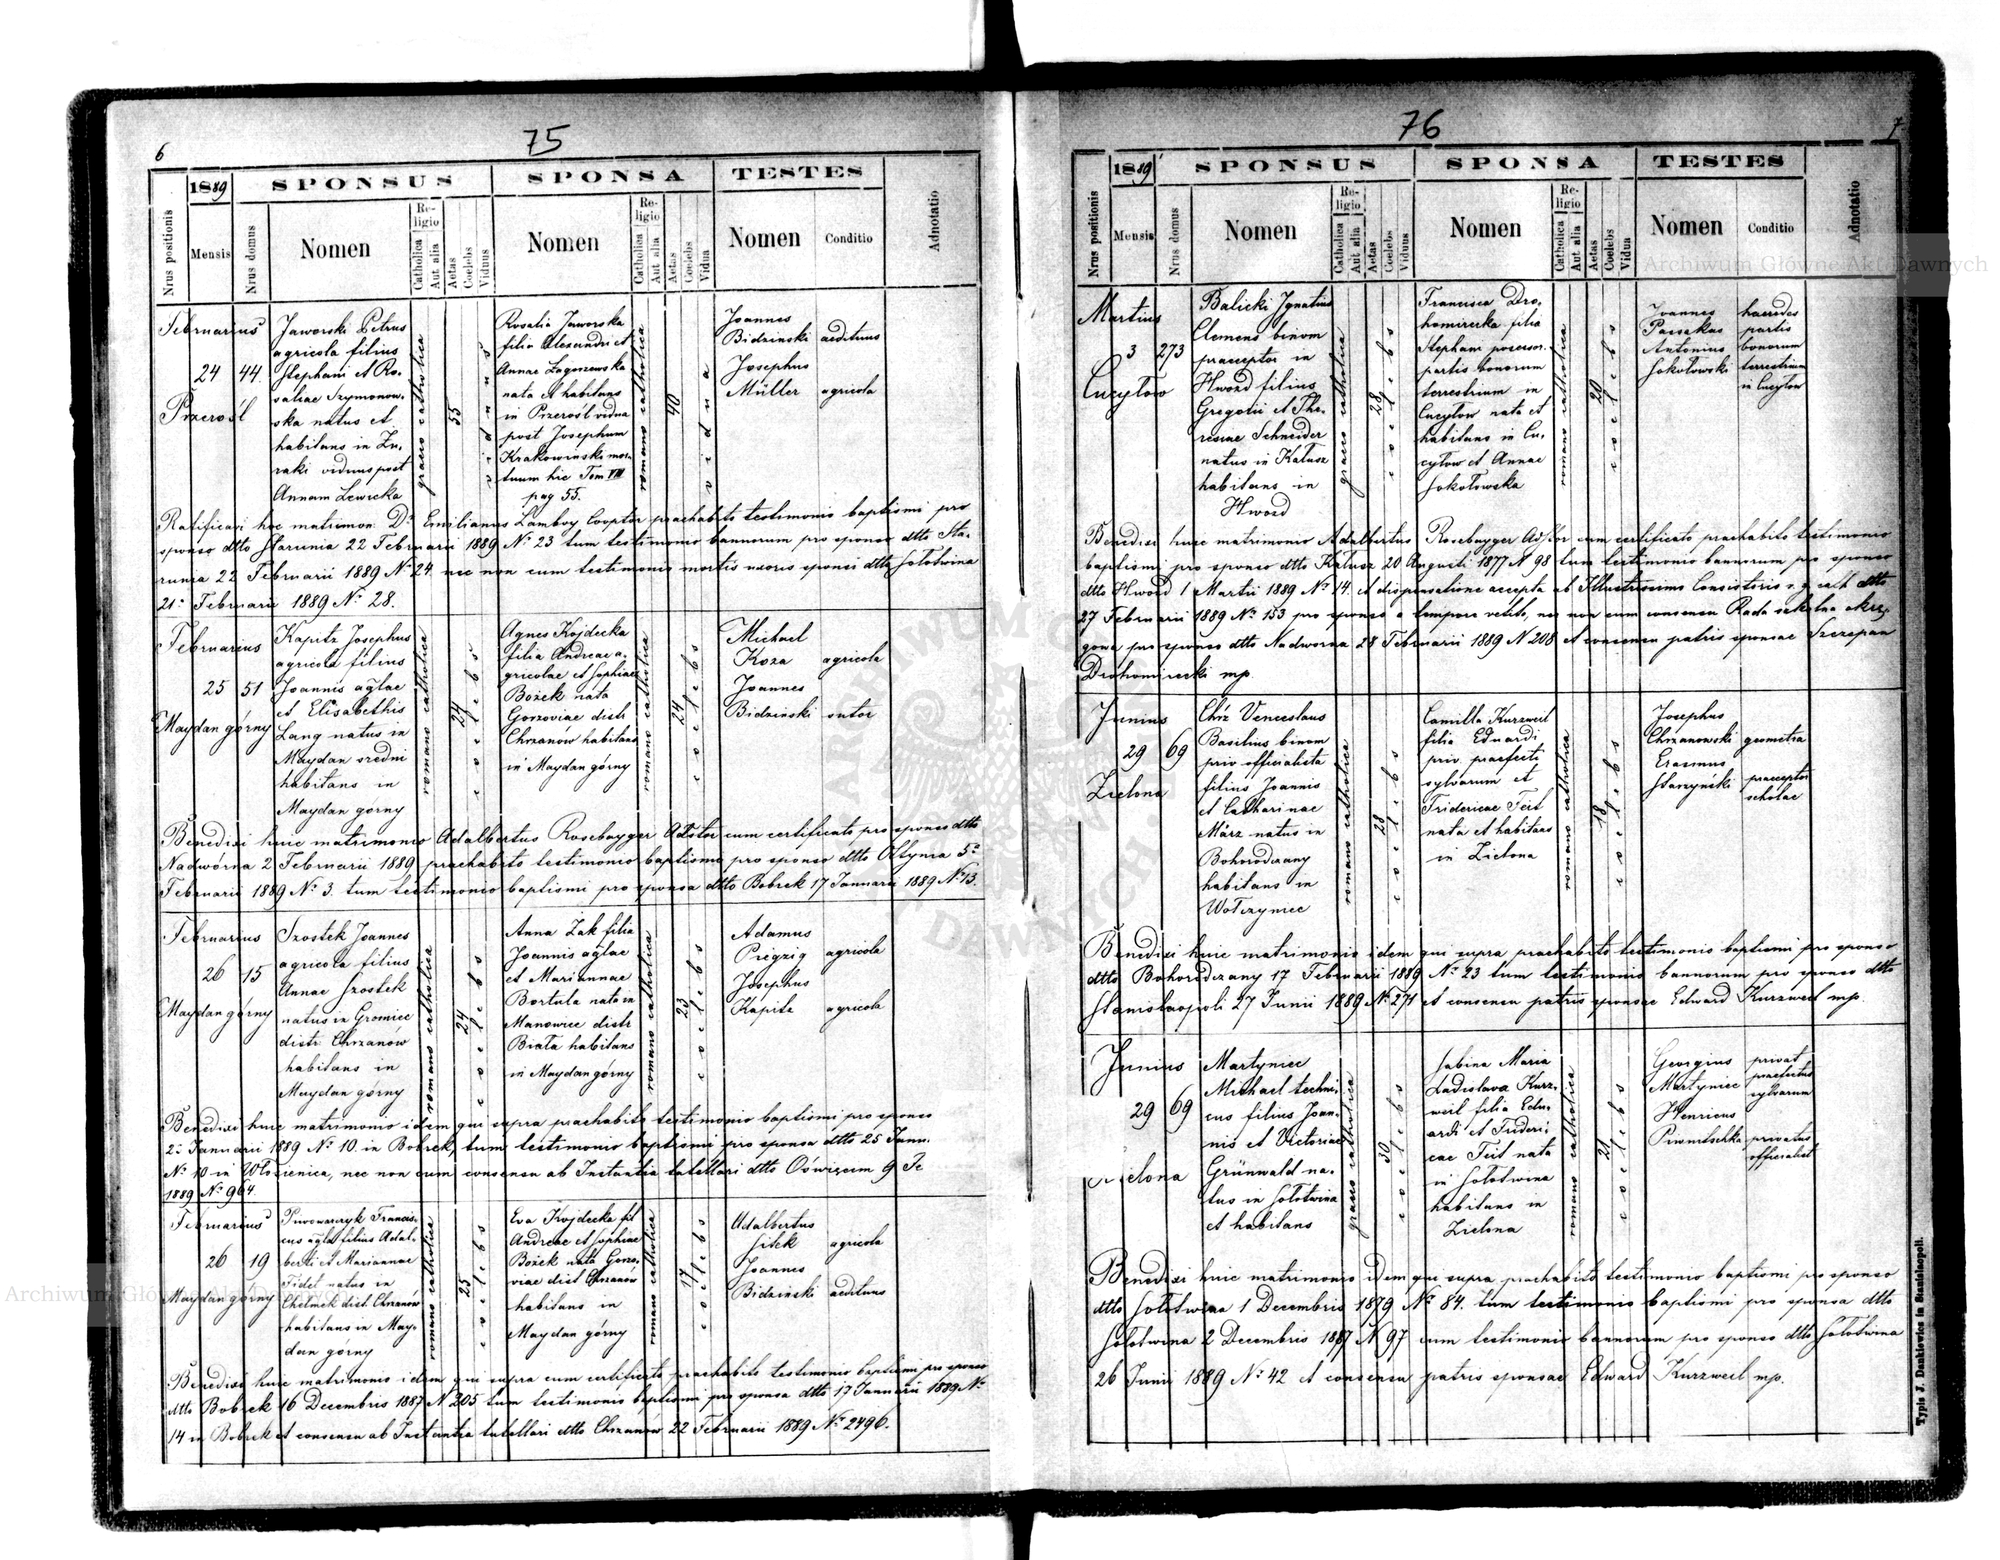 6
75
1889
SPONSUS
SPONSA
TESTES
Nrus positionis
Mensis
Nrus domus
Nomen
Religio
Catholica
Aut alia
Aetas
Coelebs
Viduus
Nomen
Religio
Catholica
Aut alia
Aetas
Coelebs
Vidua
Nomen
Conditio
Adnotatio
Februarius
24 44
Przerośl
Jaworski Petrus
agricola filius
Stephani et Ro-
saliae Szymonow-
ska natus et
habitans in Żu-
raki viduus post
Annam Lewicka
graeco catholica
55
viduus
Rosalia Jaworska
filia Alexandri et
Annae Zagorzewska
nata et habitans
in Przerośl vidua
post Josephum
Krakowinski mor-
tuum hic Tom VIII
pag 55.
romano catholica
40
vidua
Joannes
Bidzinski aedituus
Josephus
Müller agricola
Ratificavi hoc matrimon. Dr Emilianus Lamboy Cooptor praehabito testimonio baptismi pro
sponso dtto Starunia 22 Februarii 1889 No 23 tum testimonio bannorum pro sponso dtto Sta-
runia 22 Februarii 1889 No 24 nec non cum testimonio mortis uxoris sponsi dtto Sołotwina
21 Februarii 1889 No 28.
Februarius
25 51
Maydan górny
Kapitz Josephus
agricola filius
Joannis aglae
et Elisabethis
Lang natus in
Maydan sredni
habitans in
Maydan górny
romano catholica
24
coelebs
Agnes Kojdecka
filia Andreae a-
gricolae et Sophiae
Bożek nata
Gorzoviae distr
Chrzanów habitans
in Maydan górny
romano catholica
24
coelebs
Michael
Koza agricola
Joannes
Bidzinski sutor
Benedixi huic matrimonio Adalbertus Rosebayger Adstor cum certificato pro sponso dtto
Nadwórna 2 Februarii 1889 praehabito testimonio baptismo pro sponso dtto Ottynia 5
Februarii 1889 No 3. tum testimonio baptismi pro sponsa dtto Bobrek 17 Januarii 1889 No 13.
Februarius
26 15
Maydan górny
Szostek Joannes
agricola filius
Annae Szostek
natus in Gromiec
distr. Chrzanów
habitans in
Maydan górny
romano catholica
24
coelebs
Anna Żak filia
Joannis aglae
et Mariannae
Bortula nata in
Manowiec distr
Biała habitans
in Maydan górny
romano catholica
23
coelebs
Adamus
Piegzig agricola
Josephus
Kapita agricola
Benedixi huic matrimonio idem qui supra praehabito testimonio baptismi pro sponso
2 Januarii 1889 No 10 in Bobrek, tum testimonio baptismi pro sponsa dtto 25 Janu.
No 10 in Włosienica, nec non cum consensu ab Instantia tutellari dtto Oświęcim 9 Fe
1889 No 964.
Februarius
26 19
Maydan górny
Piwowarczyk Francis-
cus agla filius Adal-
berti et Mariannae
Fidel natus in
Chelmek dist. Chrzanów
habitans in May-
dan górny
romano catholica
25
coelebs
Eva Kojdecka fil
Andreae et Sophiae
Bożek nata Gorzo-
viae dist Chrzanów
habitans in
Maydan górny
romano catholica
17
coelebs
Adalbertus
Sitek agricola
Joannes
Bidzinski aedituus
Benedixi huic matrimonio idem qui supra cum certificato praehabito testimonio baptismi pro sponso
dtto Bobrek 16 Decembris 1887 N 205 tum testimonio baptismi pro sponsa dtto 17 Januarii 1889 No
14 in Bobrek et consensu ab Instantia tutellari dtto Chrzanów 22 Februarii 1889 No 2496.
76
7
1889
SPONSUS
SPONSA
TESTES
Nrus positionis
Mensis
Nrus domus
Nomen
Religio
Catholica
Aut alia
Aetas
Coelebs
Viduus
Nomen
Religio
Catholica
Aut alia
Aetas
Coelebs
Vidua
Nomen
Conditio
Adnotatio
Martius
3 273
Cucyłow
Balicki Ignatius
Clemens binom
praeceptor in
Hwozd filius
Gregorii et The-
resiae Schneider
natus in Kałusz
habitans in
Hwozd
graeco catholica
28
coelebs
Francisca Dro-
homirecka filia
Stephani possessor.
partis bonorum
terrestrium in
Cucyłow nata et
habitans in Cu-
cyłow et Annae
Sokołowska
romano catholica
20
coelebs
Joannes
Passakas
Antonius
Sokołowski
haeredes
partis
bonorum
terrestrium
in Cucyłow
Benedixi huic matrimonio Adalbertus Rosebayger Adstor cum certificato praehabito testimonio
baptismi pro sponso dtto Kałusz 20 Augusti 1877 N 98 tum testimonio bannorum pro sponso
dtto Hwozd 1 Martii 1889 No 14. et dispensatione accepta ab Illustrissimo Consistorio r. g. cat. dtto
27 Februarii 1889 No 153 pro sponso a tempore vetito, nec non cum consensu Rada szkolna okrę-
gowa pro sponso dtto Nadworna 28 Februarii 1889 N 208 et consensu patris sponsae Szczepan
Drohomirecki mp
Junius
29 69
Zielona
Chrz Venceslaus
Basilius binom
priv officialista
filius Joannis
et Catharinae
März natus in
Bohorodczany
habitans in
Wołczyniec
romano catholica
28
coelebs
Camilla Kurzweil
filia Eduardi
priv. praefecti
sylvarum et
Fridericae Feit
nata et habitans
in Zielona
romano catholica
18
coelebs
Josephus
Chrzanowski geometra
Erasmus
Starzyński praeceptor
scholae
Benedixi huic matrimonio idem qui supra praehabito testimonio baptismi pro sponso
dtto Bohorodczany 17 Februarii 1889 No 23 tum testimonio bannorum pro sponso dtto
Stanislaopoli 27 Junii 1889 No 271 et consensu patris sponsae Edward Kurzweil mp.
Junius
29 69
Zielona
Martyniec
Michael techni-
cus filius Joan-
nis et Victoriae
Grünwald na-
tus in Sołotwina
et habitans
graeco catholica
30
coelebs
Sabina Maria
Ladislava Kurz-
weil filia Edu-
ardi et Frideri-
cae Feit nata
in Sołotwina
habitans in
Zielona
romano catholica
21
coelebs
Georgius
Martyniec
privat
praefectus
sylvarum
Henricus
Prunitschka
privatus
officialist
Benedixi huic matrimonio idem qui supra praehabito testimonio baptismi pro sponso
dtto Sołotwina 1 Decembris 1879 No 84. tum testimonio baptismi pro sponsa dtto
Sołotwina 2 Decembris 1887 N 97 cum testimonio bannorum pro sponso dtto Sołotwina
26 Junii 1889 No 42 et consensu patris sponsae Edward Kurzweil mp.
Typis J. Dankiewicz in Stanislaopoli.
Archiwum Główne Akt Dawnych
Archiwum Główne Akt Dawnych